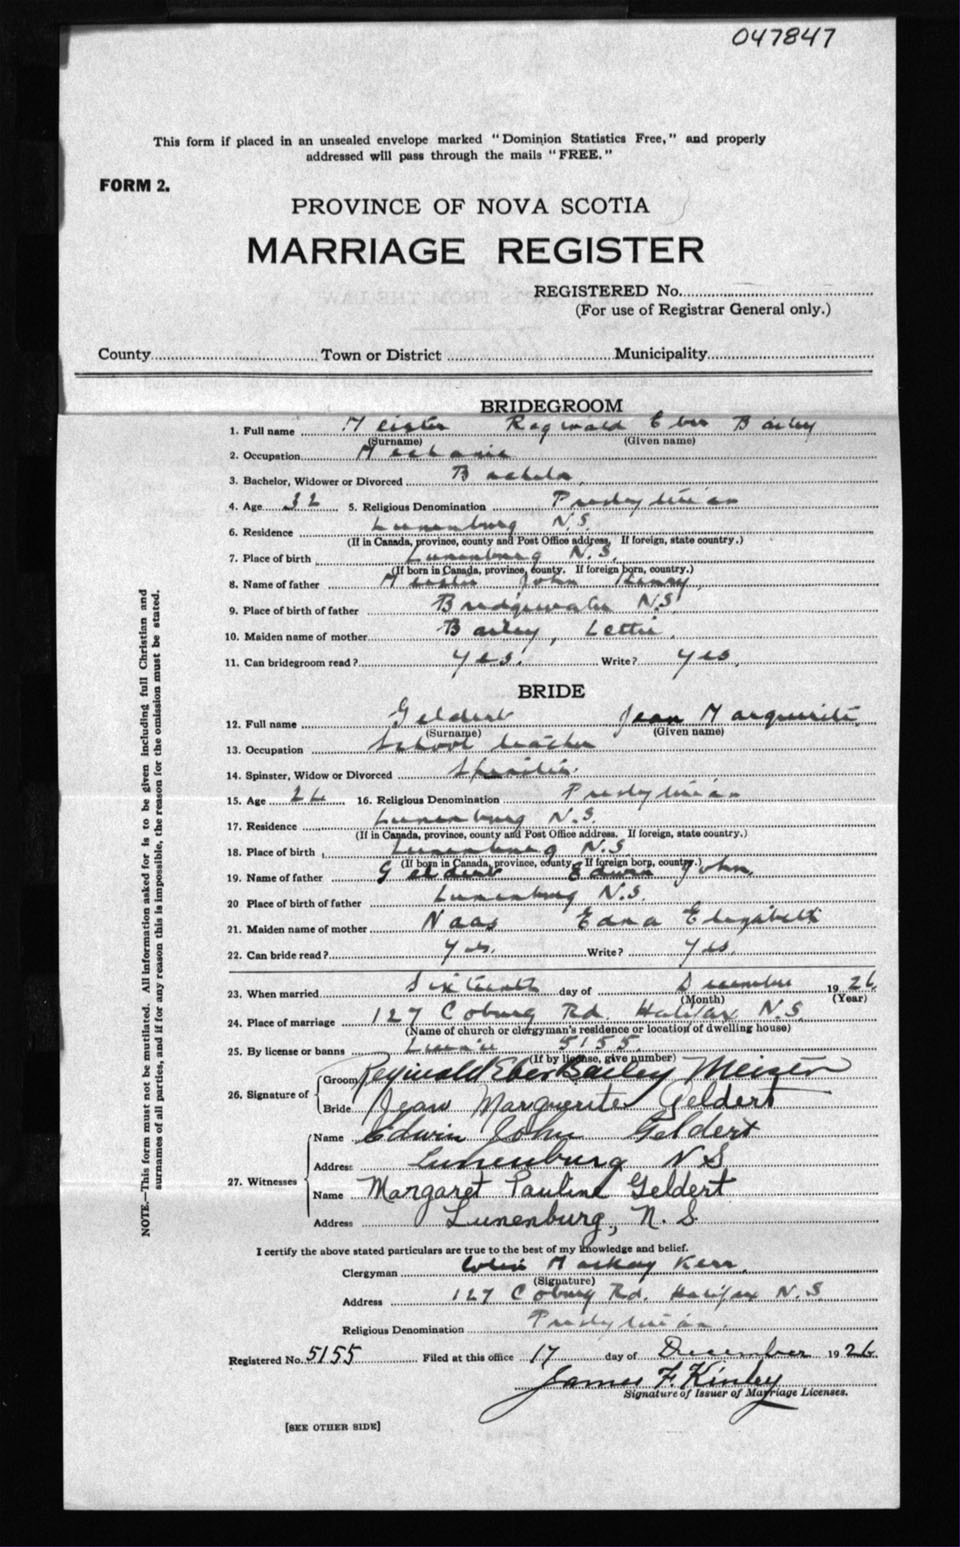 047847
This form if placed in an unsealed envelope marked "Dominion Statistics Free," and properly
addressed will pass through the mails "FREE."
FORM 2.
PROVINCE OF NOVA SCOTIA
MARRIAGE REGISTER
REGISTERED No.
(For use of Registrar General only.)
County Town or District Municipality
BRIDEGROOM
1. Full name Meister Reginald Eber Bailey
(Surname) (Given name)
2. Occupation Mechanic
3. Bachelor, Widower or Divorced Bachelor
4. Age 32 5. Religious Denomination Presbyterian
6. Residence Lunenburg N.S.
(If in Canada, province, county and Post Office address. If foreign, state country.)
7. Place of birth Lunenburg N.S.
(If born in Canada, province, county. If foreign born, country.)
8. Name of father Meister John Henry
9. Place of birth of father Bridgewater N.S.
10. Maiden name of mother Bailey, Lettie
11. Can bridegroom read? Yes. Write? Yes.
BRIDE
12. Full name Geldert Jean Marguerite
(Surname) (Given name)
13. Occupation School teacher
14. Spinster, Widow or Divorced Spinster
15. Age 16. Religious Denomination Presbyterian
17. Residence Lunenburg N.S.
(If in Canada, province, county and Post Office address. If foreign, state country.)
18. Place of birth Lunenburg N.S
(If born in Canada, province, county. If foreign born, country.)
19. Name of father Geldert Edwin John
20 Place of birth of father Lunenburg N.S.
21. Maiden name of mother Naas Edna Elizabeth
22. Can bride read? Yes. Write? Yes.
23. When married Sixteenth day of December 1926
(Month) (Year)
24. Place of marriage 127 Coburg Rd. Halifax N.S.
(Name of church or clergyman's residence or location of dwelling house)
25. By license or banns Licence 5155
(If by license, give number)
26. Signature of Groom Reginald Eber Bailey Meister
Bride Jean Marguerite Geldert
27. Witnesses Name Edwin John Geldert
Address Lunenburg N S
Name Margaret Pauline Geldert
Address Lunenburg, N. S.
I certify the above stated particulars are true to the best of my knowledge and belief.
Clergyman Colin Mackay Kerr
(Signature)
Address 127 Coburg Rd. Halifax N.S
Religious Denomination Presbyterian.
Registered No. 5155 Filed at this office 17 day of December 1926
James F. Kinley
Signature of Issuer of Marriage Licenses.
[SEE OTHER SIDE]
NOTE.—This form must not be mutilated. All information asked for is to be given including full Christian and
surnames of all parties, and if for any reason this is impossible, the reason for the omission must be stated.